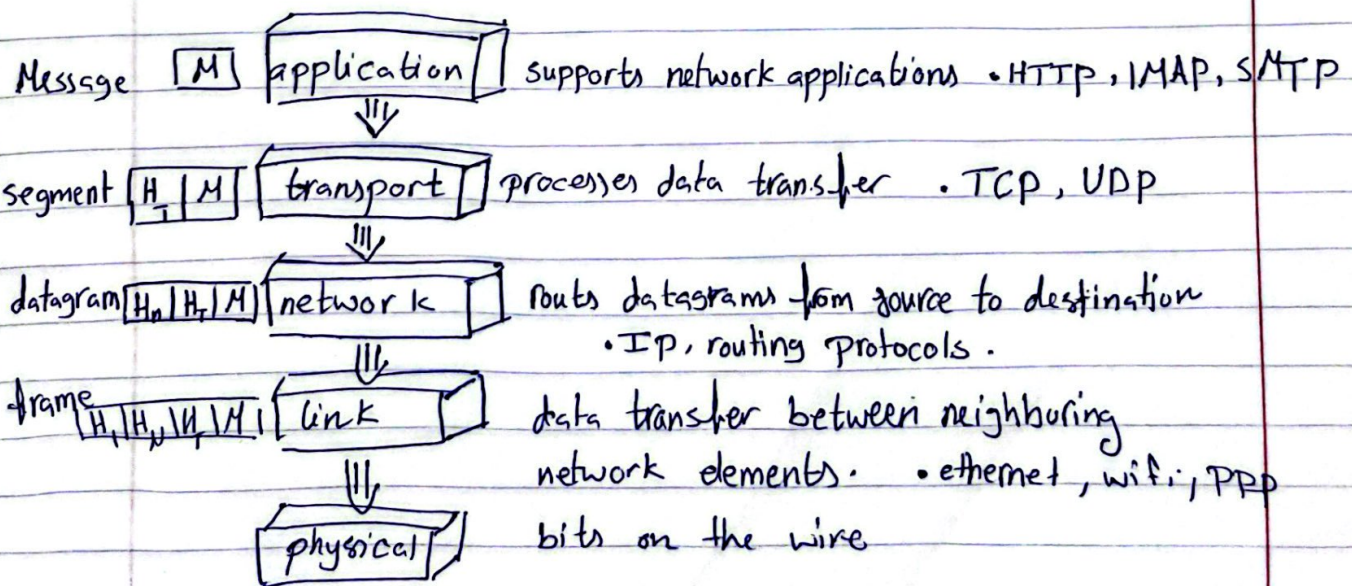 Message M application supports network applications • HTTP, IMAP, SMTP
segment H_T M transport processes data transfer • TCP, UDP
datagram H_n H_T M network routs datagrams from source to destination
• IP, routing protocols.
frame H_l H_N H_T M link data transfer between neighboring
network elements. • ethernet, wifi, PPP
physical bits on the wire